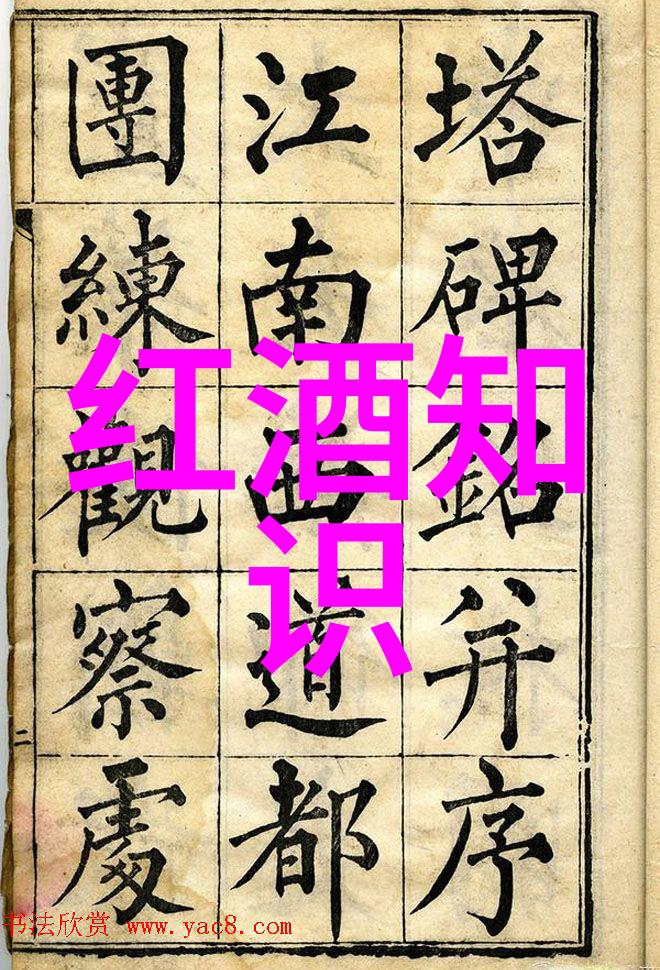 塔碑銘并序
江南西道都
團練觀察處
红酒知
识
二
书法欣赏 www.yac8.com